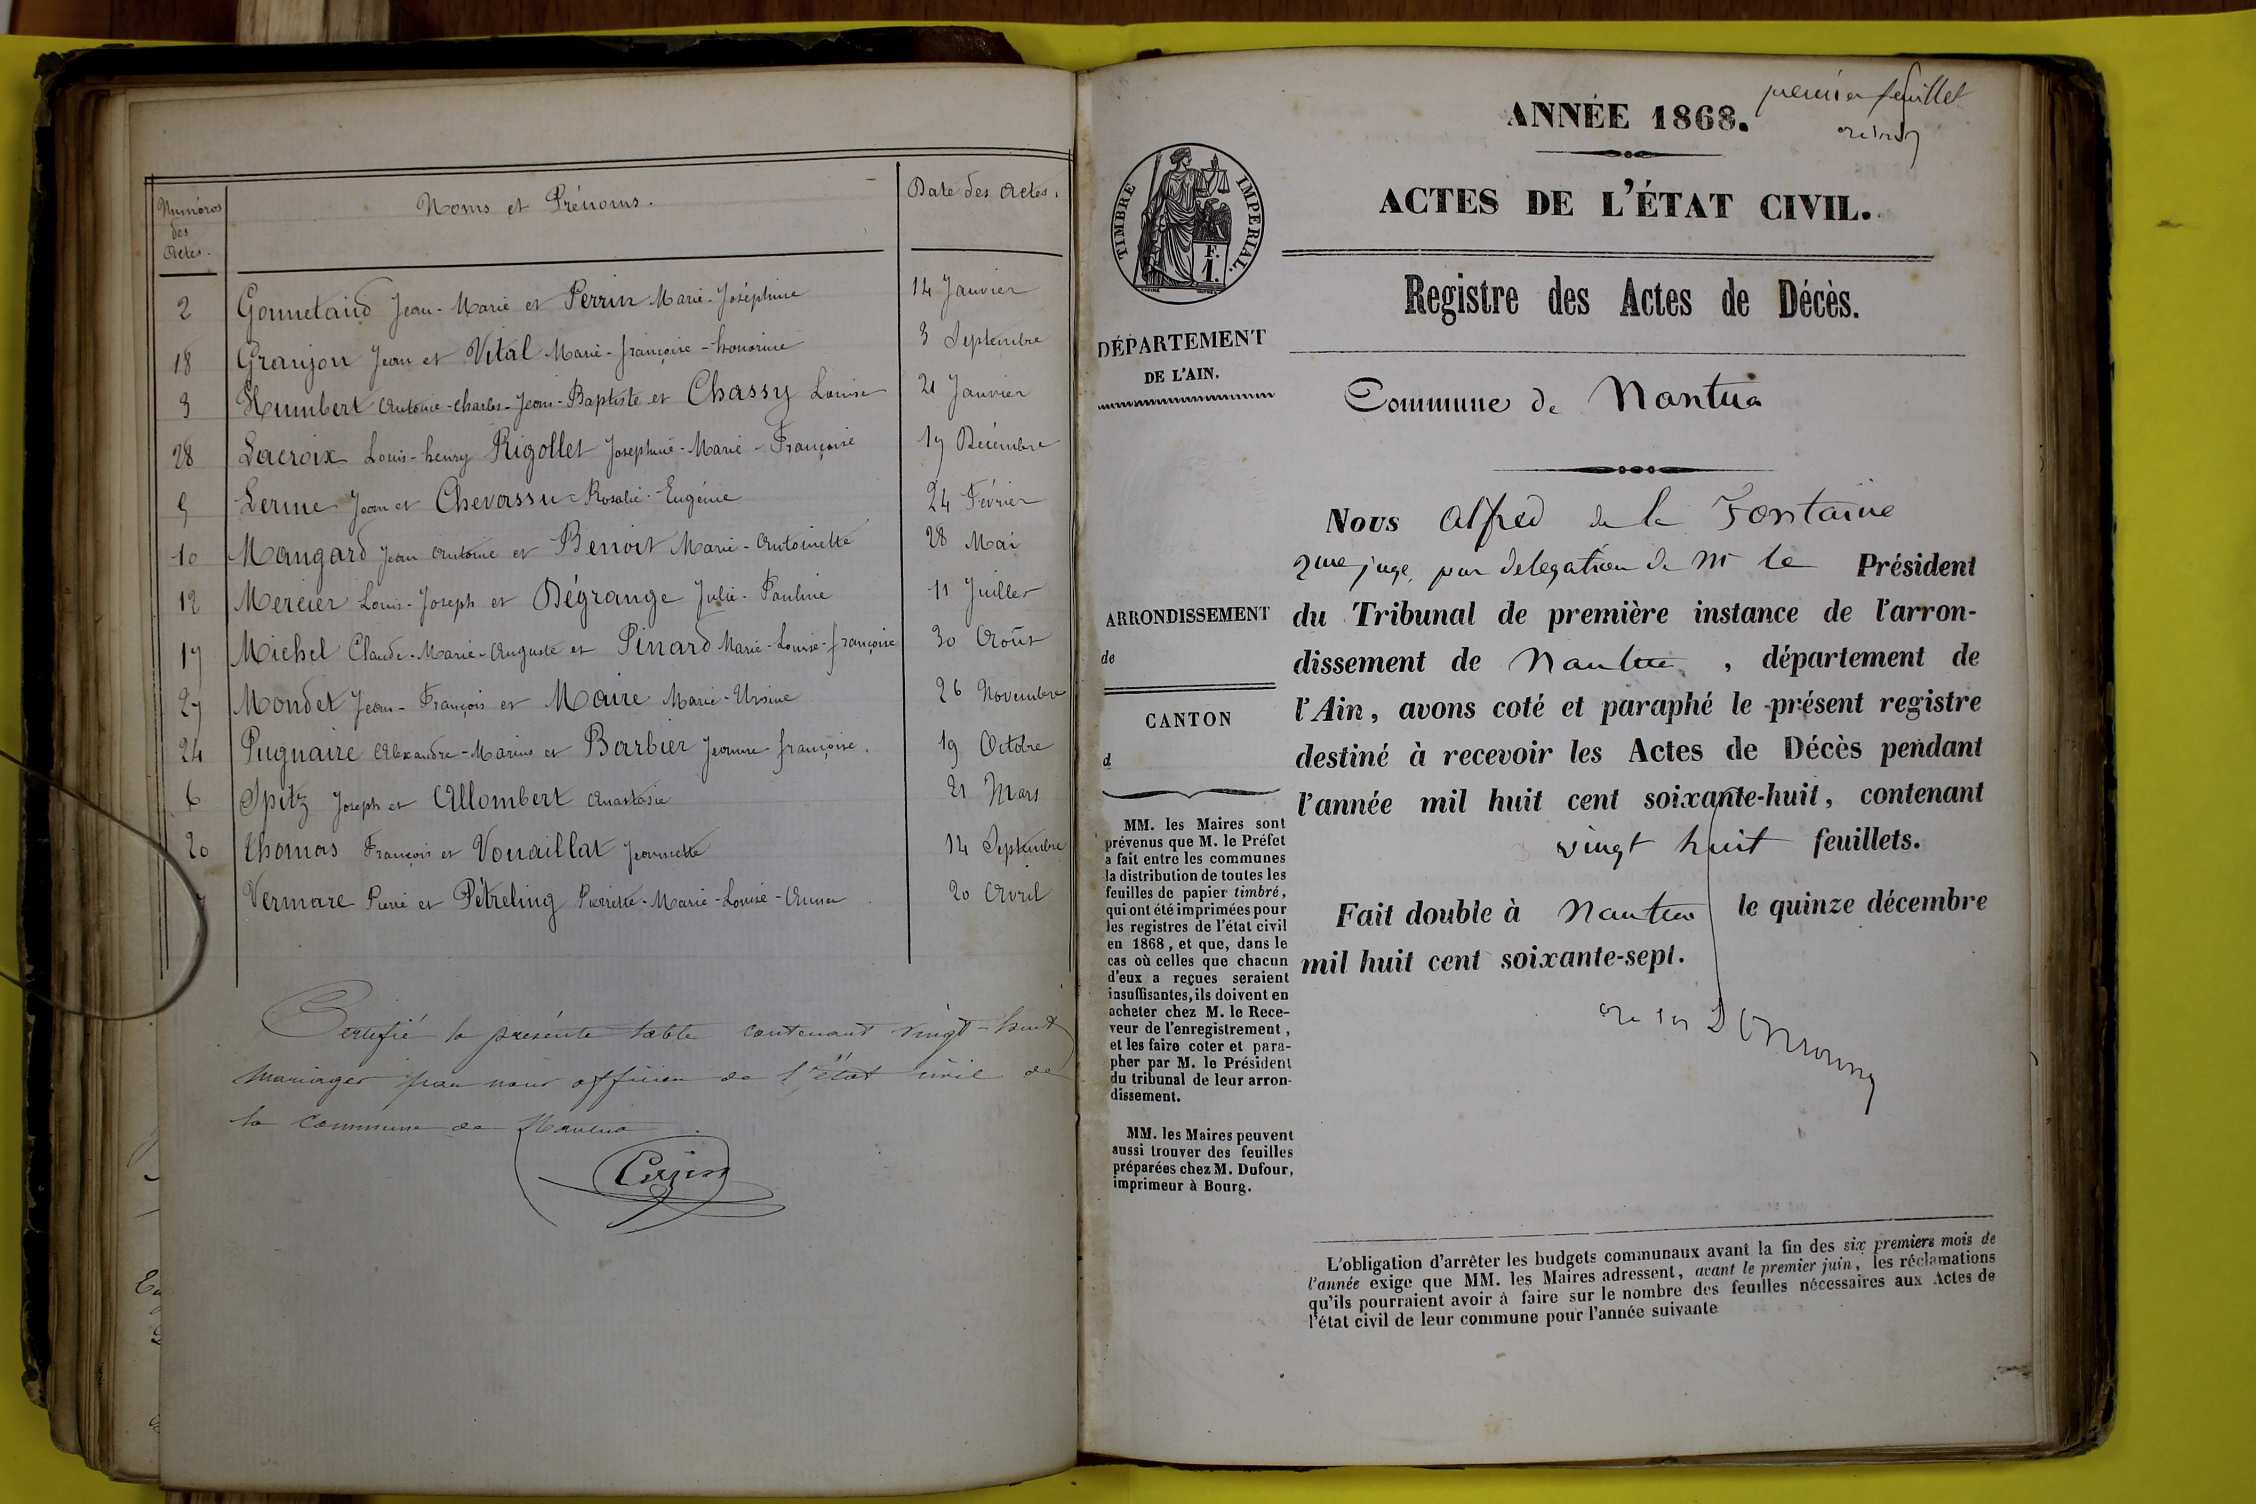 Numéros
des
Actes.
Noms et Prénoms.
Date des Actes.
2 Gonnetand Jean-Marie et Perrin Marie-Joséphine 14 Janvier
18 Granjon Jean et Vital Marie-françoise-honorine 3 Septembre
3 Humbert Antoine-Charles-Jean-Baptiste et Chassy Louise 21 Janvier
28 Lacroix Louis-henry Rigollet Joséphine-Marie-Françoise 17 Décembre
5 Lerme Jean et Chevassu-Rosalie-Eugénie 24 Février
10 Mangard Jean Antoine et Benoit Marie-Antoinette 28 Mai
12 Mercier Louis-Joseph et Dégrange Julie-Pauline 11 Juillet
17 Michel Claude-Marie-Auguste et Pinard Marie-Louise-françoise 30 Août
27 Mondet Jean-François et Maire Marie-Ursine 26 Novembre
24 Pugnaire Alexandre-Marius et Barbier Jeanne-françoise. 19 Octobre
6 Spitz Joseph et Allombert Anastasie 21 Mars
20 Thomas François et Vouaillat Jeannette 14 Septembre
Vermare Pierre et Pétreling Pierrette-Marie-Louise-Anna 20 Avril
Certifié la présente table contenant vingt-huit
mariages par nous officier de l'état civil de
la commune de Nantua
premier feuillet
ANNÉE 1868.
ACTES DE L'ÉTAT CIVIL.
TIMBRE IMPERIAL.
F.
1.
Registre des Actes de Décès.
DÉPARTEMENT
DE L'AIN.
Commune de Nantua
Nous Alfred de la Fontaine
2me juge, par delegation de Mr le Président
du Tribunal de première instance de l'arron-
dissement de Nantua, département de
l'Ain, avons coté et paraphé le présent registre
destiné à recevoir les Actes de Décès pendant
l'année mil huit cent soixante-huit, contenant
vingt huit feuillets.
Fait double à Nantua le quinze décembre
mil huit cent soixante-sept.
ARRONDISSEMENT
de
CANTON
d
MM. les Maires sont
prévenus que M. le Préfet
a fait entre les communes
la distribution de toutes les
feuilles de papier timbré,
qui ont été imprimées pour
les registres de l'état civil
en 1868, et que, dans le
cas où celles que chacun
d'eux a reçues seraient
insuffisantes, ils doivent en
acheter chez M. le Rece-
veur de l'enregistrement,
et les faire coter et para-
pher par M. le Président
du tribunal de leur arron-
dissement.
MM. les Maires peuvent
aussi trouver des feuilles
préparées chez M. Dufour,
imprimeur à Bourg.
L'obligation d'arrêter les budgets communaux avant la fin des six premiers mois de
l'année exige que MM. les Maires adressent, avant le premier juin, les réclamations
qu'ils pourraient avoir à faire sur le nombre des feuilles nécessaires aux Actes de
l'état civil de leur commune pour l'année suivante